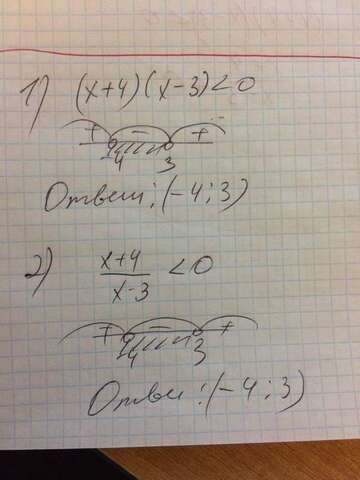 1) (x+4)(x-3)<0
+ - +
-4 3
Ответ: (-4; 3)
2) x+4 / x-3 <0
+ - +
-4 3
Ответ: (-4; 3)